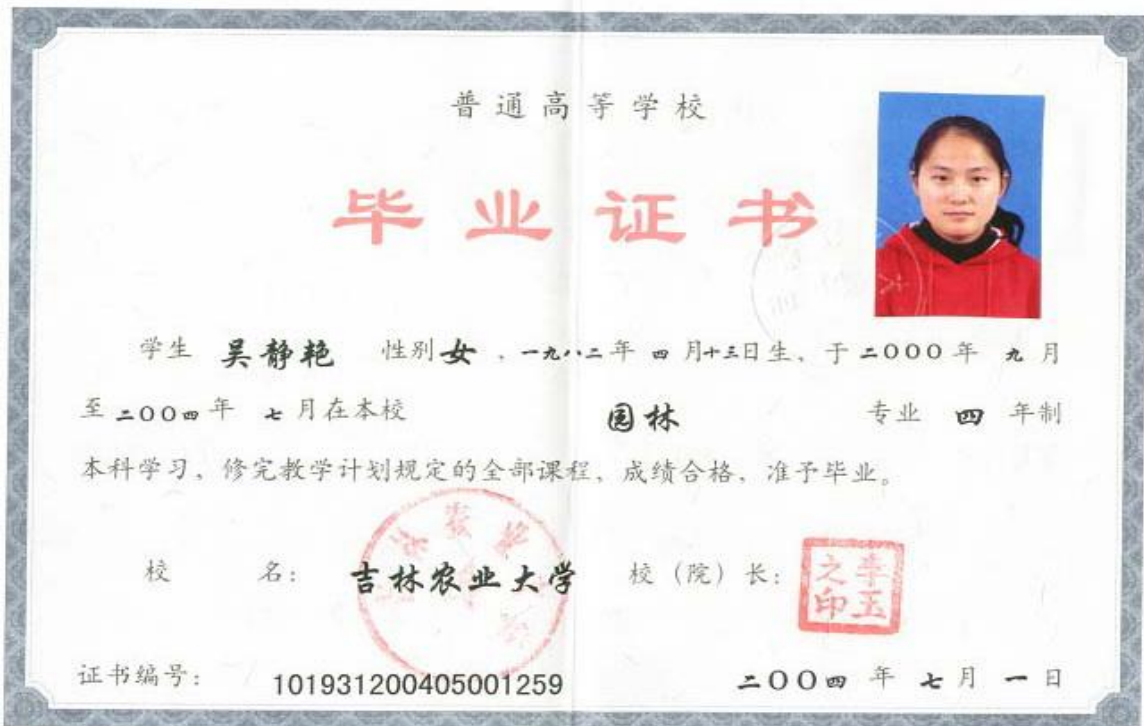 普通高等学校
毕业证书
学生 吴静艳 性别 女 、一九八二年 四 月十三日生、于 二000 年 九 月
至 二00四 年 七 月在本校 园林 专业 四 年制
本科学习、修完教学计划规定的全部课程、成绩合格、准予毕业。
校 名: 吉林农业大学 校（院）长: 李玉之印
证书编号: 101931200405001259 二00四 年 七 月 一 日